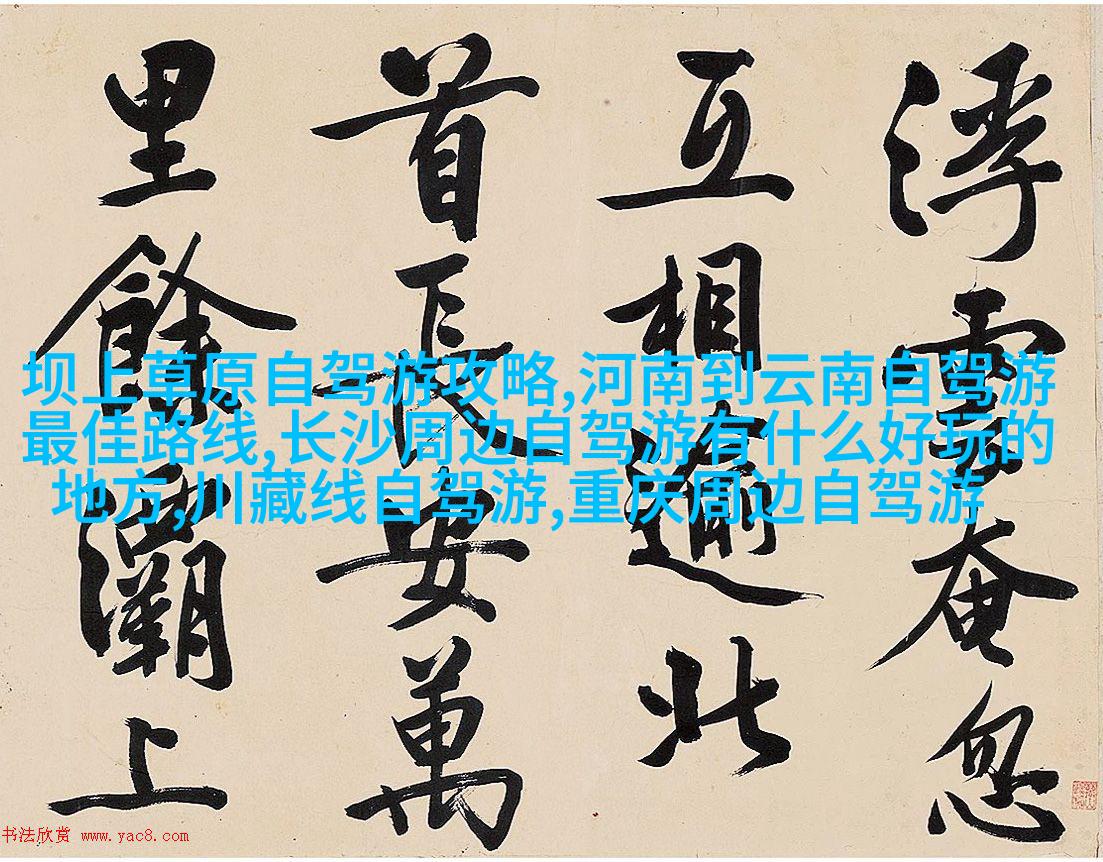 浮雲奄忽
互相逾北
首長安萬
里餘灞上
坝上草原自驾游攻略,河南到云南自驾游
最佳路线,长沙周边自驾游有什么好玩的
地方,川藏线自驾游,重庆周边自驾游
书法欣赏 www.yac8.com